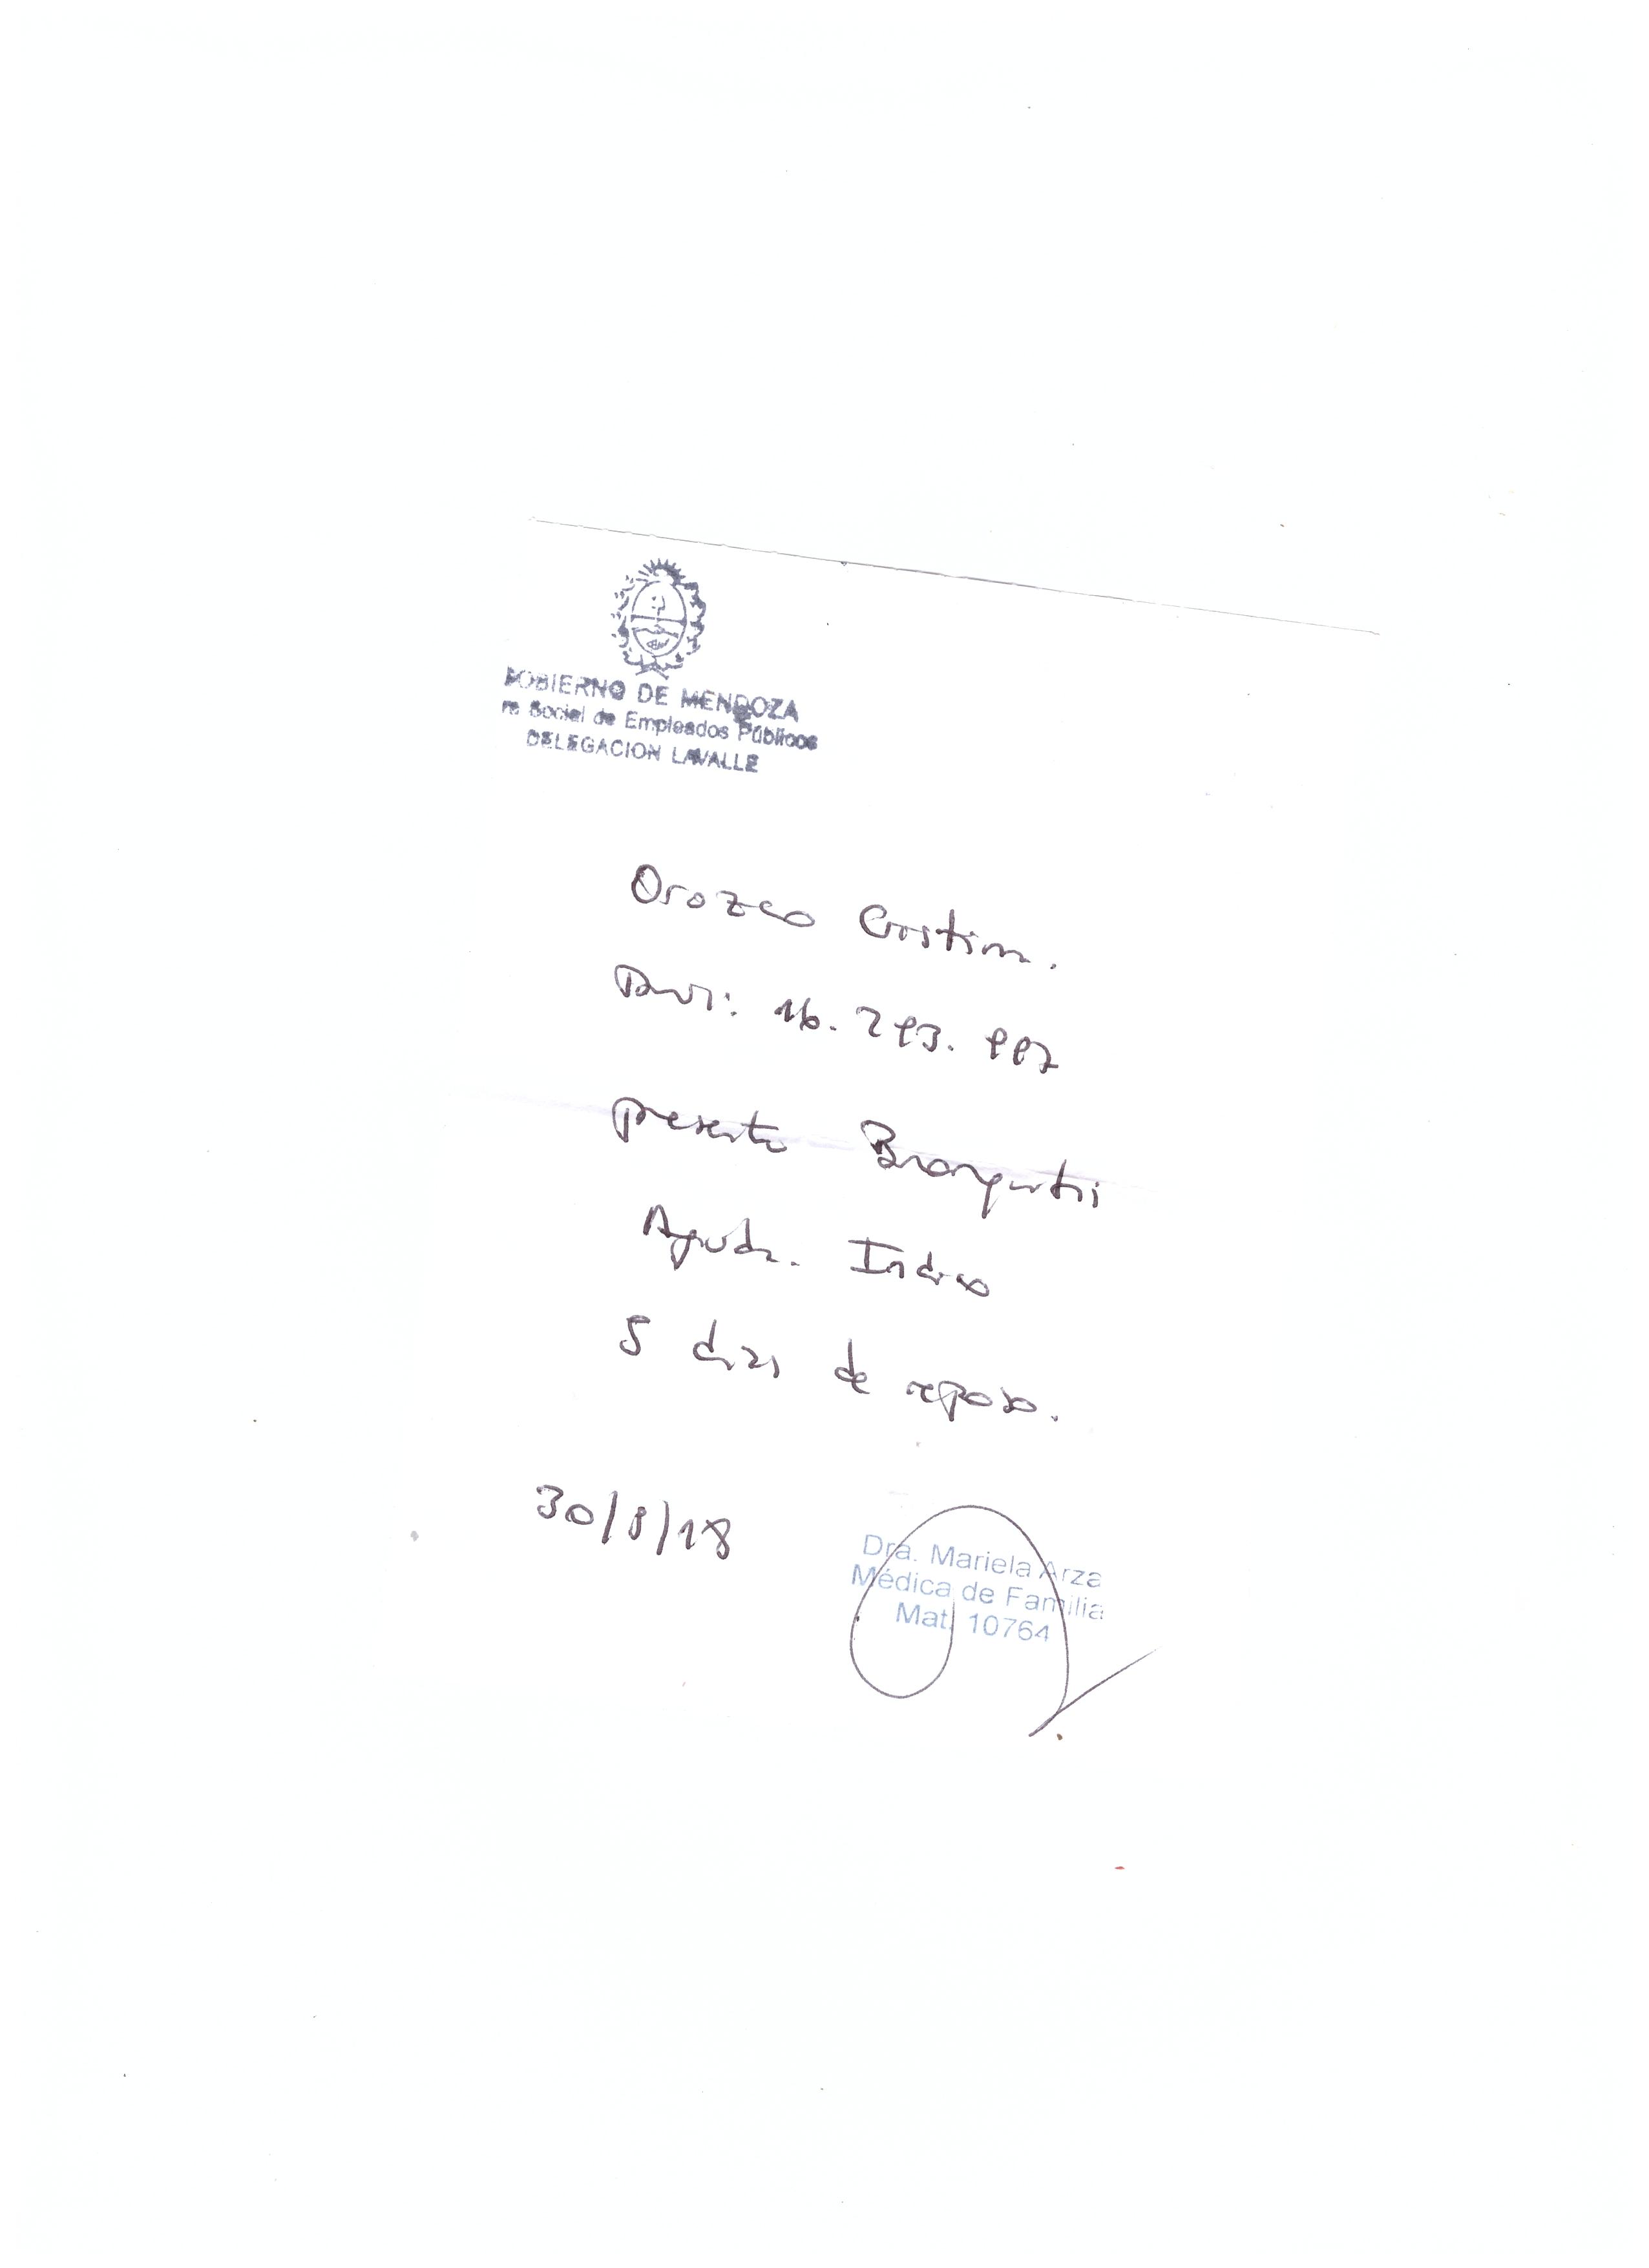 GOBIERNO DE MENDOZA
Social de Empleados Públicos
DELEGACION LAVALLE
Orozco Cristina.
DNI: 16.
presenta
Aguda. Indico
5 dias de reposo.
30/8/18
Dra. Mariela Arza
Médica de Familia
Mat. 10764